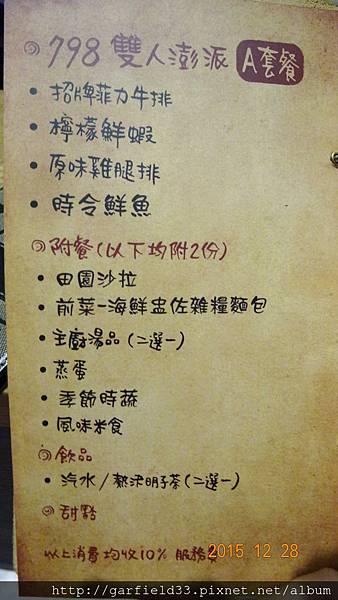 798 雙人澎派 A套餐
• 招牌菲力牛排
• 檸檬鮮蝦
• 原味雞腿排
• 時令鮮魚
附餐(以下均附2份)
• 田園沙拉
• 前菜-海鮮盅佐雜糧麵包
• 主廚湯品(二選一)
• 蒸蛋
• 季節時蔬
• 風味米食
飲品
• 汽水/熱決明子茶(二選一)
甜點
以上消費均收10% 服務
2015 12 28
http://garfield33.pixnet.net/album